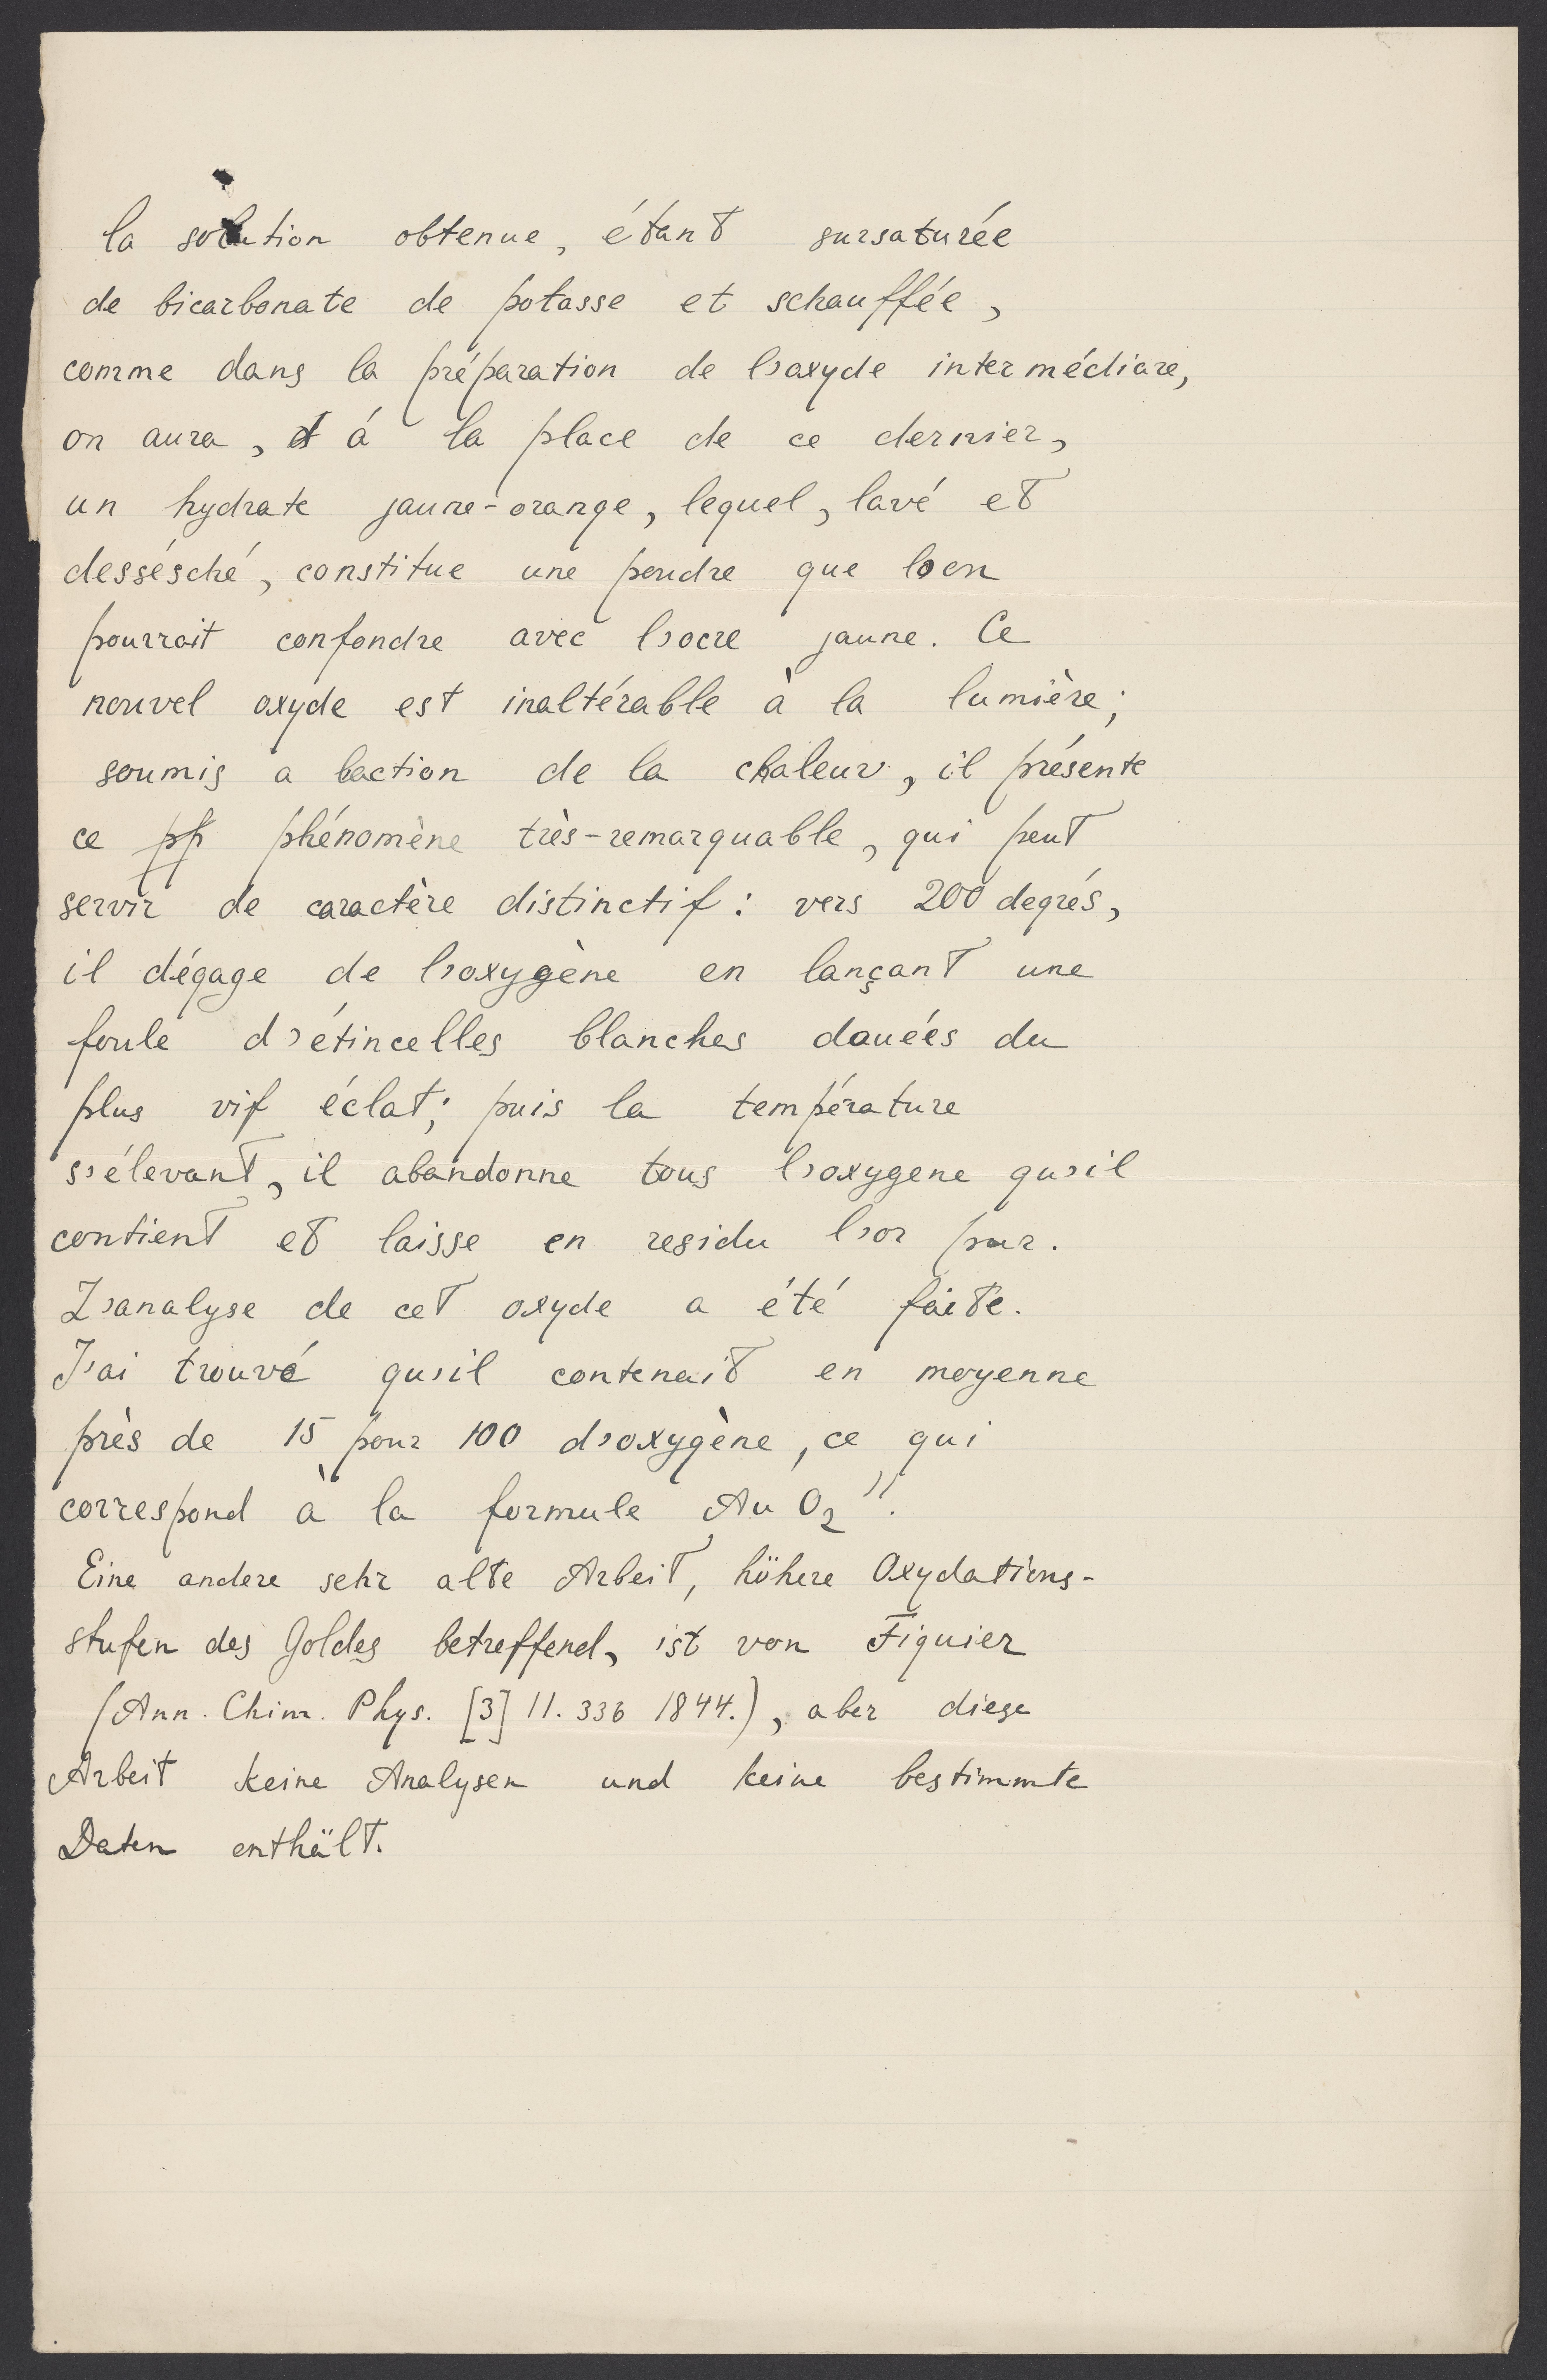 la solution obtenue, étant sursaturée
de bicarbonate de potasse et schauffée,
comme dans la préparation de l'oxyde intermédiare,
on aura, á la place de ce dernier,
un hydrate jaune-orange, lequel, lavé et
dessésché, constitue une poudre que l'on
pourrait confondre avec l'ocre jaune. Ce
nouvel oxyde est inaltérable à la lumière;
soumis a l'action de la chaleur, il présente
ce pp phénomène très-remarquable, qui peut
servir de caractère distinctif: vers 200 degrés,
il dégage de l'oxygène en lançant une
foule d'étincelles blanches douées du
plus vif éclat; puis la température
s'élevant, il abandonne tous l'oxygene qu'il
contient et laisse en residu l'or pur.
L'analyse de cet oxyde a été faite.
J'ai trouvé qu'il contenait en moyenne
près de 15 pour 100 d'oxygène, ce qui
correspond à la formule Au O₂".
Eine andere sehr alte Arbeit, höhere Oxydations-
stufen des Goldes betreffend, ist von Figuier
(Ann. Chim. Phys. [3] 11. 336 1844.), aber diese
Arbeit keine Analysen und keine bestimmte
Daten enthält.